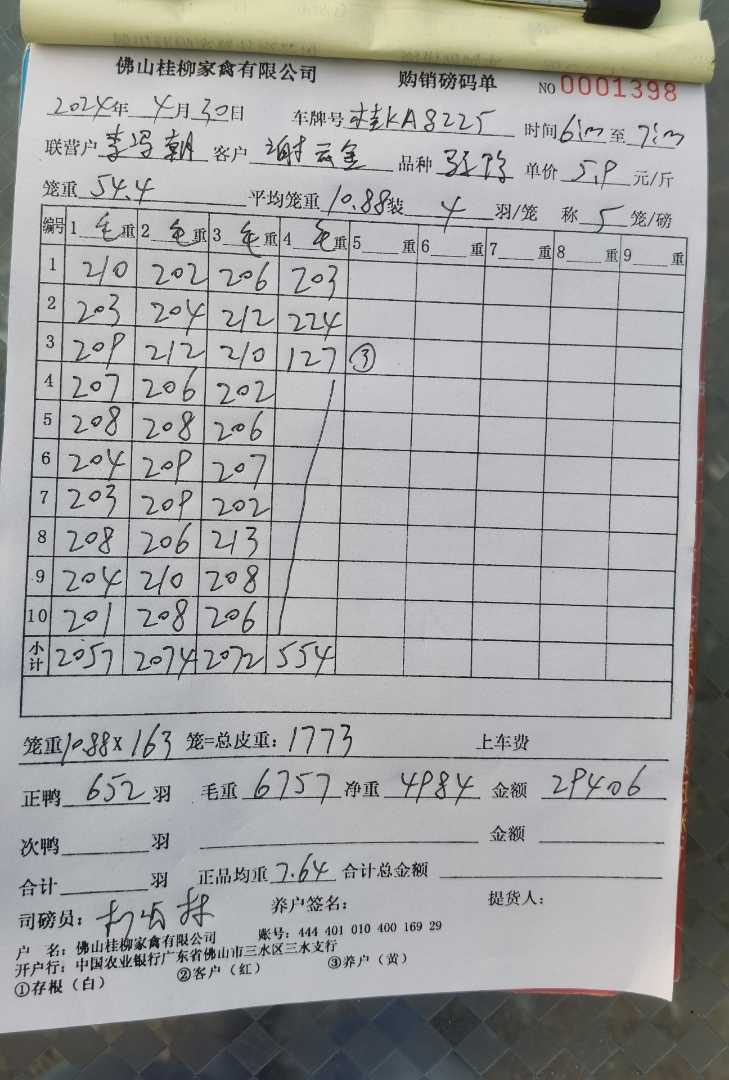 佛山桂柳家禽有限公司 购销磅码单 NO 0001398
2024年 4月 30日 车牌号 桂KA8225 时间 6:00 至 7:00
联营户 李 朝 客户 谢云全 品种 单价 5.9 元/斤
笼重 54.4 平均笼重 10.88 装 4 羽/笼 称 5 笼/磅
编号 1 毛 重 2 毛 重 3 毛 重 4 毛 重 5 重 6 重 7 重 8 重 9 重
1 210 202 206 203
2 203 204 212 224
3 209 212 210 127 ③
4 207 206 202
5 208 208 206
6 204 209 207
7 203 209 202
8 208 206 213
9 204 210 208
10 201 208 206
小计 2057 2074 2072 554
笼重 10.88 x 163 笼=总皮重: 1773 上车费
正鸭 652 羽 毛重 6757 净重 4984 金额 29406
次鸭 羽 金额
合计 羽 正品均重 7.64 合计总金额
司磅员: 养户签名: 提货人:
户 名: 佛山桂柳家禽有限公司 账号: 444 401 010 400 169 29
开户行: 中国农业银行广东省佛山市三水区三水支行
①存根（白） ②客户（红） ③养户（黄）